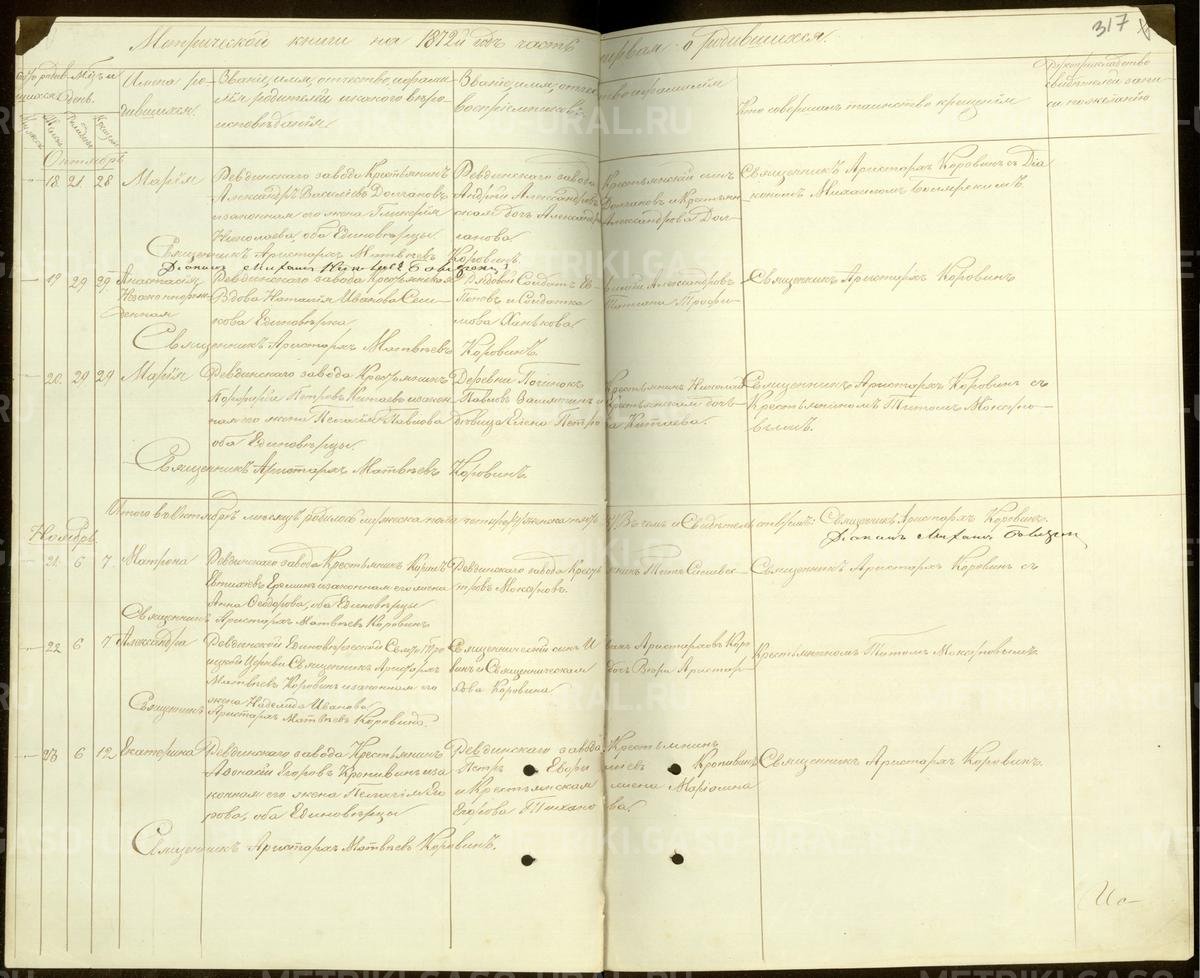 317
Метрической книги на 1872й годъ часть первая о родившихся.
Имена родившихся.
Званіе, имя, отчество, и фамилія родителей и какого вѣроисповѣданія.
Званіе, имя, отчество и фамилія воспріемниковъ.
Кто совершалъ таинство крещенія
Рукоприкладство свидѣтелей записи по желанію
Октябрь
18. 21. 28 Марія
Ревдинскаго завода Крестьянинъ
Александръ Васильевъ Долгановъ
и законная его жена Гликерія
Николаева, оба Единовѣрцы.
Ревдинскаго завода Крестьянскій сынъ
Андрей Александровъ Долгановъ и Крестьян-
ская дочь Александра Александрова Дол-
ганова.
Священникъ Аристархъ Коровинъ съ Діа-
кономъ Михаиломъ
Священникъ Аристархъ Матвѣевъ Коровинъ
Діаконъ Михаилъ
19 29 29 Анастасія
Незаконнорож-
денная
Ревдинскаго завода Крестьянская
Вдова Наталія Иванова
Единовѣрка
Рядовой Солдатъ Александровъ
Поповъ и Солдатка Татіана Трофи-
мова Ханькова
Священникъ Аристархъ Коровинъ
Священникъ Аристархъ Матвѣевъ Коровинъ.
20. 29 29 Марія
Ревдинскаго завода Крестьянинъ
Порфирій Петровъ Китаевъ и закон-
ная его жена Пелагія Павлова
оба Единовѣрцы.
Деревни Починокъ Крестьянинъ Николай
Павловъ и Крестьянская дочь
дѣвица Елена Петрова Китаева.
Священникъ Аристархъ Коровинъ съ
Крестьяниномъ Титомъ Макаро-
вымъ.
Священникъ Аристархъ Матвѣевъ Коровинъ.
Итого въ Октябрѣ мѣсяцѣ родилось мужеска пола четыре женска пять
Въ чемъ и Свидѣтельствуемъ: Священникъ Аристархъ Коровинъ.
Діаконъ Михаилъ
Ноябрь
21. 6 7. Матрона
Ревдинскаго завода Крестьянинъ
и законная его жена
Анна Ѳеодорова, оба Единовѣрцы
Ревдинскаго завода Крестьянинъ Титъ
Макаровъ.
Священникъ Аристархъ Коровинъ съ
Священникъ Аристархъ Матвѣевъ Коровинъ
22 6 7 Александра
Ревдинской Единовѣрческой Свято Тро-
ицкой Церкви Священникъ Аристархъ
Матвѣевъ Коровинъ и законная его
жена Надежда Иванова
Священническій сынъ Иванъ Аристарховъ Коро-
винъ и Священническая дочь Вѣра Аристар-
хова Коровина
Крестьяниномъ Титомъ Макаровымъ.
Священникъ Аристархъ Матвѣевъ Коровинъ.
23 6 12 Екатерина
Ревдинскаго завода Крестьянинъ
Аѳонасій Егоровъ Кропивинъ и за-
конная его жена Пелагія Его-
рова, оба Единовѣрцы
Ревдинскаго завода Крестьянинъ
Петръ Кропивинъ
и Крестьянская жена Маріамна
Егорова
Священникъ Аристархъ Коровинъ.
Священникъ Аристархъ Матвѣевъ Коровинъ.
METRIKI.GASO-URAL.RU